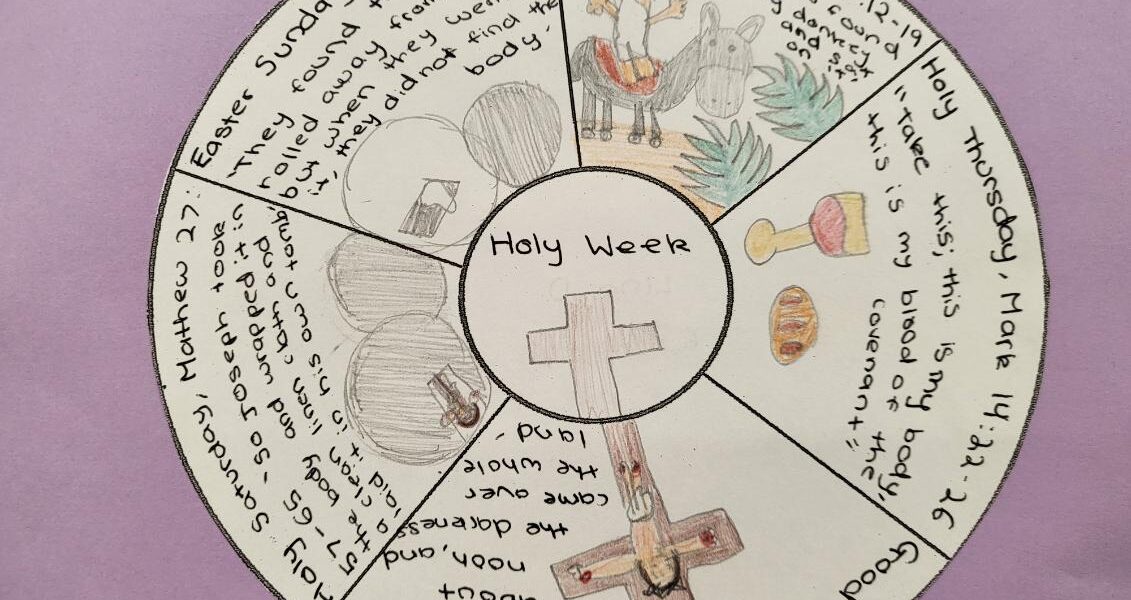 Holy Week
:12-19
found
donkey
and sat
on
Holy Thursday, Mark 14:22-26
"Take this; this is my body,
this is my blood of the
covenant"
Good
about
noon, and
the darkness
came over
the whole
land -
Holy Saturday, Matthew 27:
57-65 - So Joseph took
the body and wrapped it in
a clean linen cloth and
laid it in his own tomb
Easter Sunda
"They found
rolled away from
but when they wen
it, they did not find the
body.